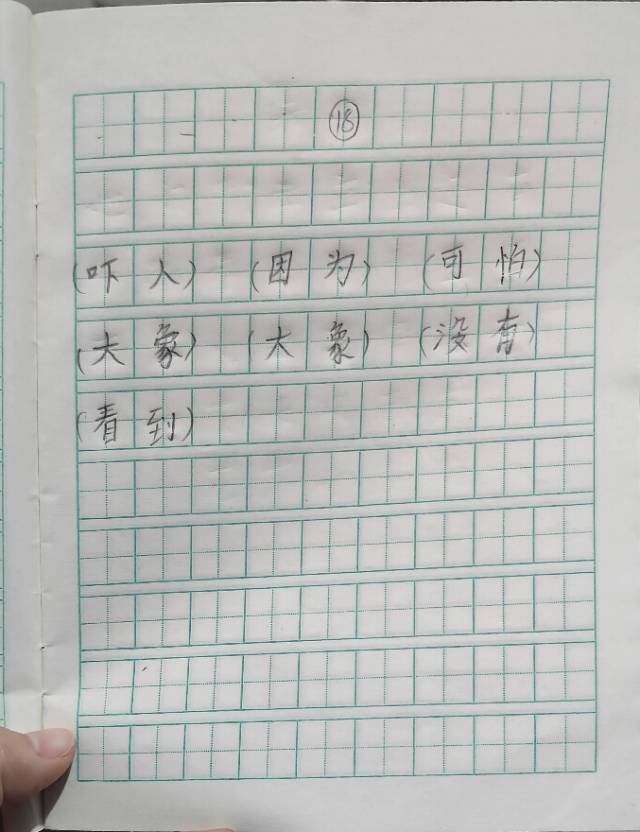 18
(吓人) (因为) (可怕)
(大象) (大象) (没有)
(看到)